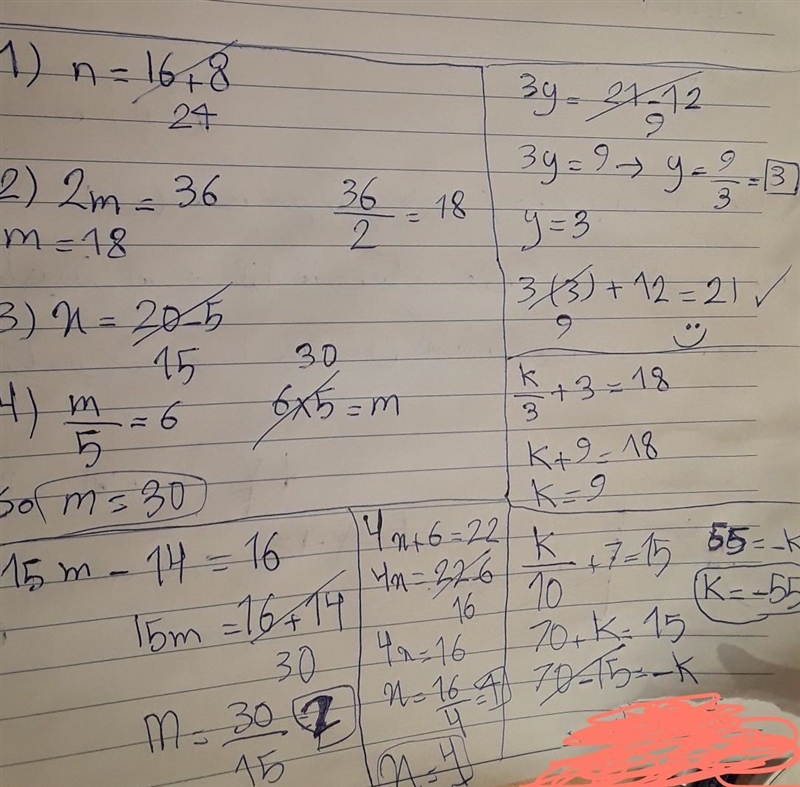 1) n = 16+8
24
2) 2m = 36
36/2 = 18
m = 18
3) x = 20-5
15
4) m/5 = 6
30
6×5 = m
So m = 30
3y = 21-12
9
3y = 9 → y = 9/3 = 3
y = 3
3(3) + 12 = 21 ✓
9
k/3 + 3 = 18
k + 9 = 18
k = 9
15m - 14 = 16
15m = 16+14
30
m = 30/15 = 2
4x+6 = 22
4x = 22-6
16
4x = 16
x = 16/4 = 4
x = 4
k/10 + 7 = 15
70 + k = 15
70-15 = -k
55 = -k
k = -55